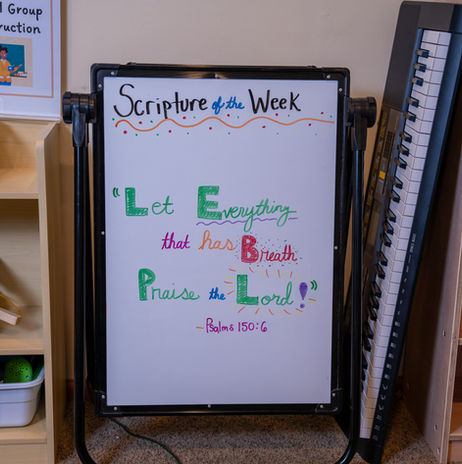 l Group
ruction
Scripture of the Week
"Let Everything
that has Breath
Praise the Lord!"
-Psalms 150:6